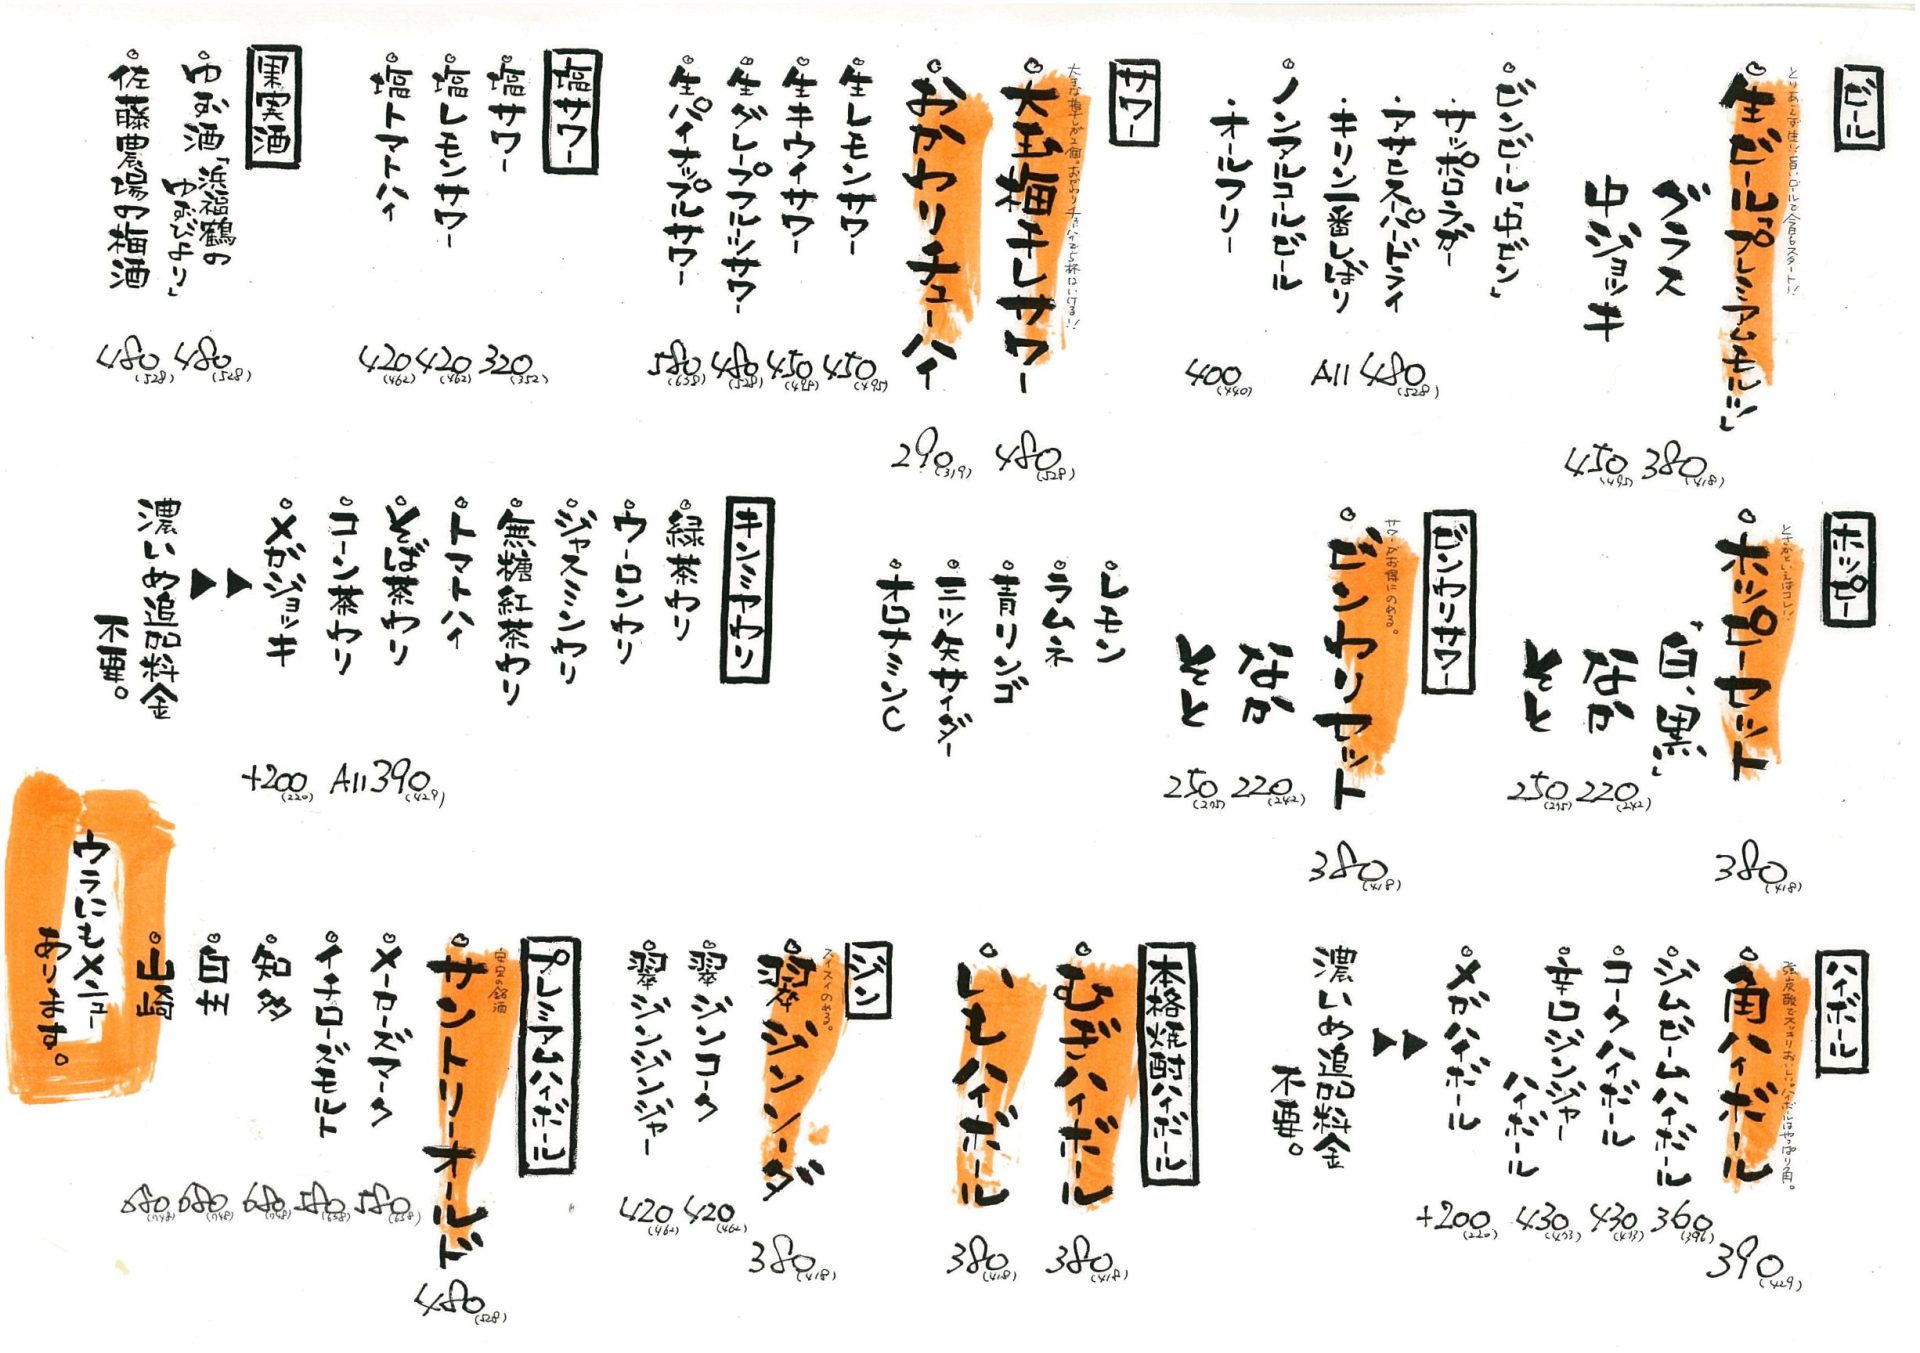 ビール
とりあえず生!!旨いビールで今日もスタート!!
生ビール「プレミアムモルツ」
グラス 380(418)
中ジョッキ 450(495)
ビンビール「中ビン」
・サッポロラガー
・アサヒスーパードライ
・キリン一番しぼり
All 480(528)
ノンアルコールビール
・オールフリー
400(440)
サワー
大きな梅干しが2個。おかわりチューハイで5杯はいける!!
大玉梅干しサワー 480(528)
おかわりチューハイ 290(319)
生レモンサワー 450(495)
生キウイサワー 450(495)
生グレープフルーツサワー 480(528)
生パイナップルサワー 580(638)
塩サワー
塩サワー 320(352)
塩レモンサワー 420(462)
塩トマトハイ 420(462)
果実酒
ゆず酒「浜福鶴の
ゆずびより」 480(528)
佐藤農場の梅酒 480(528)
ホッピー
とさかといえばコレ!!
ホッピーセット 380(418)
"白、黒"
なか 220(242)
そと 250(275)
ビンワリサワー
サワーよりお得にのめる。
ビンワリセット 380(418)
なか 220(242)
そと 250(275)
レモン
ラムネ
青リンゴ
三ツ矢サイダー
オロナミンC
キンミヤワリ
緑茶ワリ
ウーロンワリ
ジャスミンワリ
無糖紅茶ワリ
トマトハイ
そば茶ワリ
コーン茶ワリ
All 390(429)
メガジョッキ +200(220)
▶▶
濃いめ追加料金
不要。
ハイボール
強炭酸でスッキリおいしい。ハイボールはやっぱり角。
角ハイボール 390(429)
ジムビームハイボール 360(396)
コークハイボール 430(473)
辛口ジンジャー
ハイボール 430(473)
メガハイボール +200(220)
▶▶
濃いめ追加料金
不要。
本格焼酎ハイボール
むぎハイボール 380(418)
いもハイボール 380(418)
ジン
スイスイのめる。
翠ジンソーダ 380(418)
翠ジンコーク 420(462)
翠ジンジンジャー 420(462)
プレミアムハイボール
安定の銘酒
サントリーオールド 480(528)
メーカーズマーク 580(638)
イチローズモルト 580(638)
知多 680(748)
白州 680(748)
山崎 680(748)
ウラにもメニュー
あります。